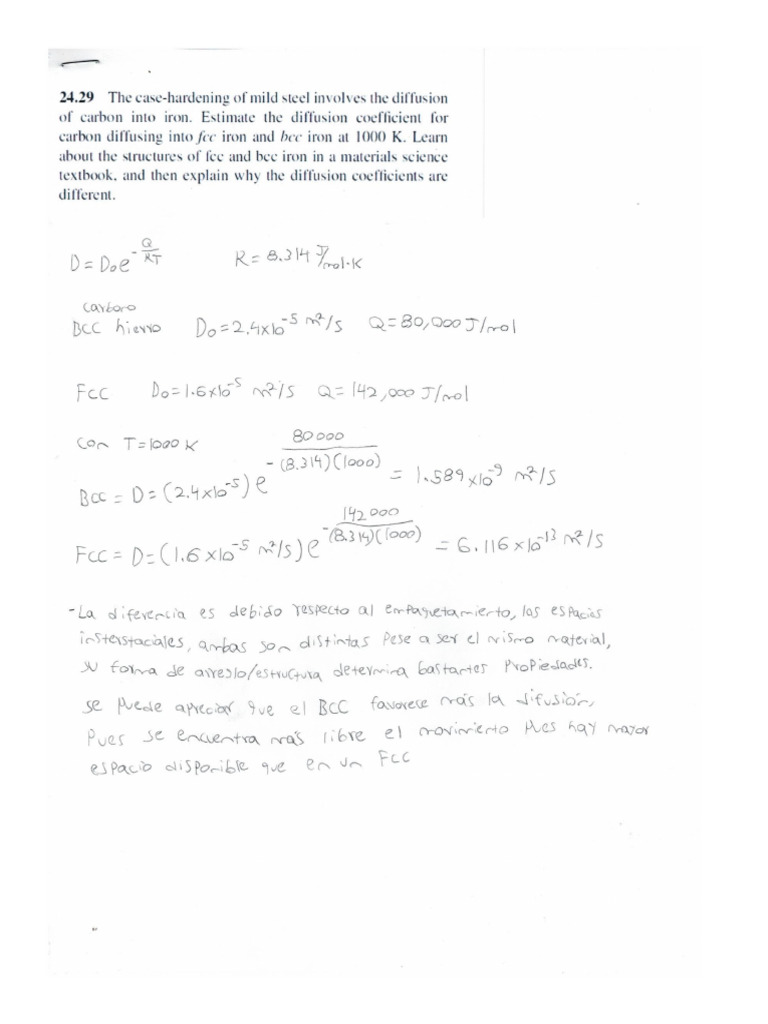 24.29 The case-hardening of mild steel involves the diffusion
of carbon into iron. Estimate the diffusion coefficient for
carbon diffusing into fcc iron and bcc iron at 1000 K. Learn
about the structures of fcc and bcc iron in a materials science
textbook, and then explain why the diffusion coefficients are
different.
D = D₀e^(-Q/RT) R = 8.314 J/mol·K
carbono
BCC hierro D₀ = 2.4x10⁻⁵ m²/s Q = 80,000 J/mol
FCC D₀ = 1.6x10⁻⁵ m²/s Q = 142,000 J/mol
Con T = 1000 K
BCC = D = (2.4x10⁻⁵) e^(-80000/(8.314)(1000)) = 1.589x10⁻⁹ m²/s
FCC = D = (1.6x10⁻⁵ m²/s) e^(-142000/(8.314)(1000)) = 6.116x10⁻¹³ m²/s
- La diferencia es debido respecto al empaquetamiento, los espacios
insterstaciales, ambas son distintas pese a ser el mismo material,
su forma de arreglo/estructura determina bastantes propiedades.
se puede apreciar que el BCC favorece más la difusión,
pues se encuentra más libre el movimiento pues hay mayor
espacio disponible que en un FCC